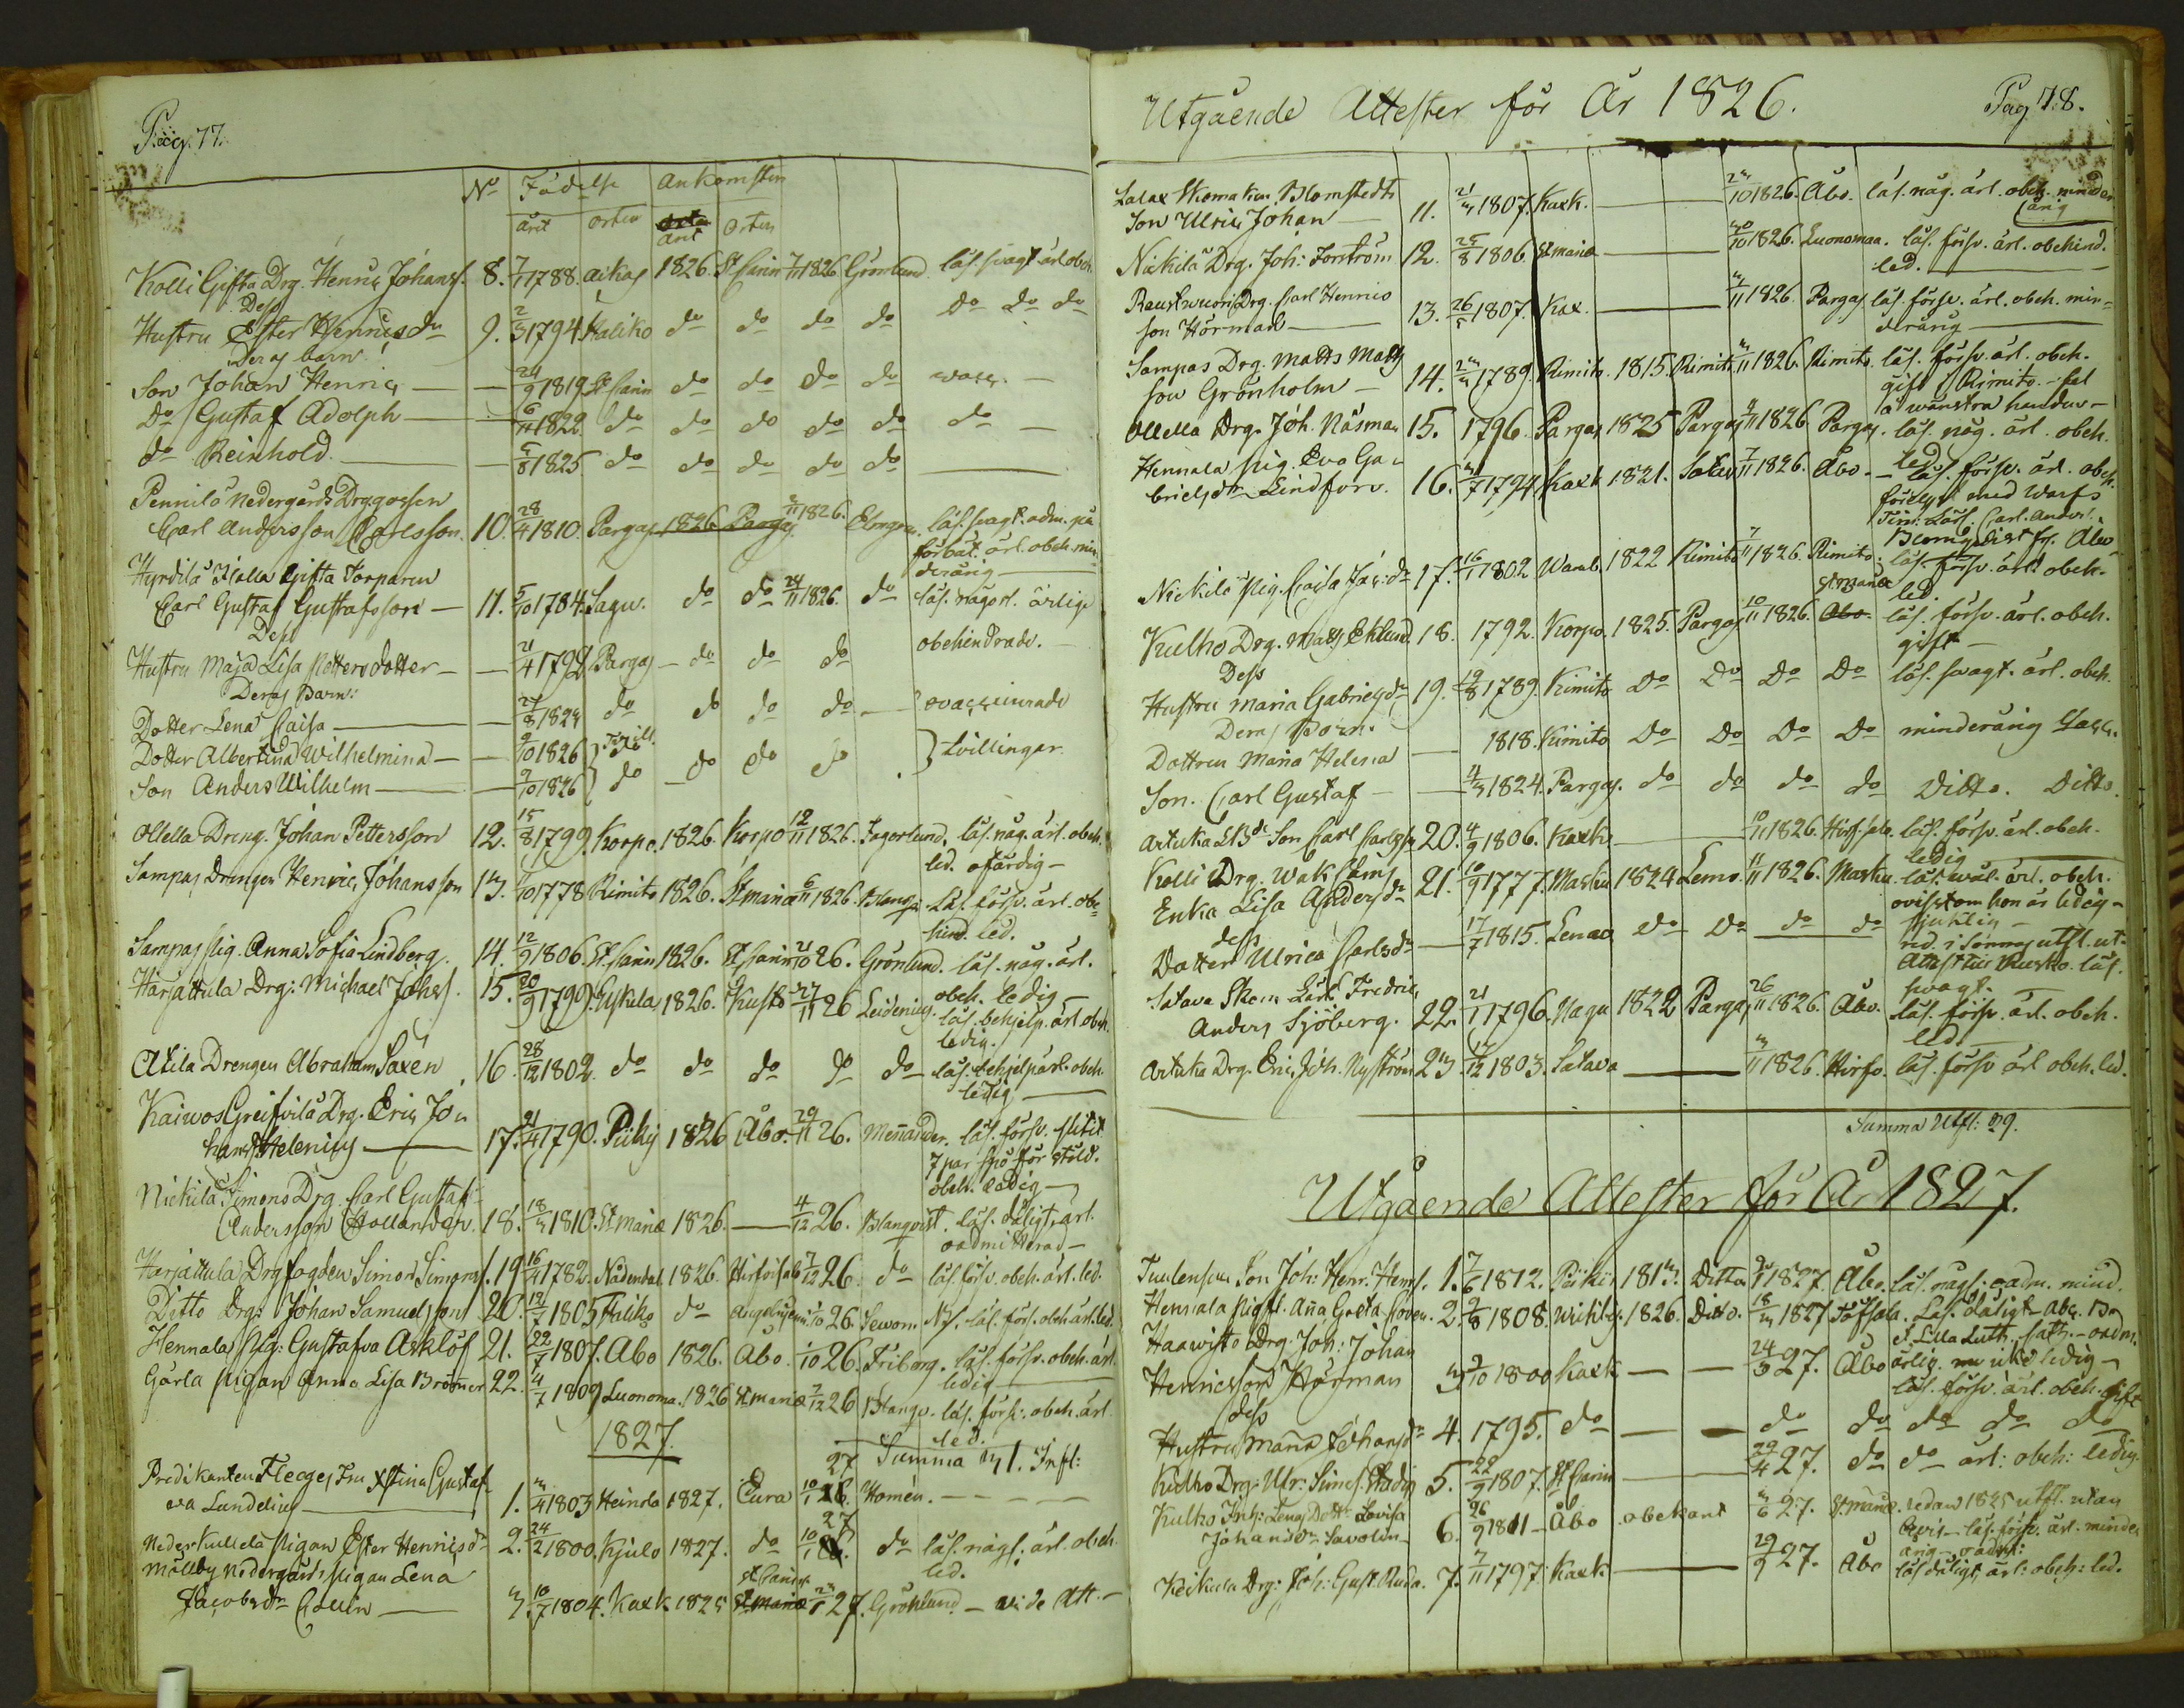 Pag. 77.
No Födelse Ankomsten
året orten året orten
Kolli Gifta Drg. Henric Johanss. 8. 7/1 1788. Aikas 1826. St Carin 7/11 1826 Grönlund läs. svagt ärl. obeh.
Dess
Hustru Ester Henricsdr 9. 2/3 1794 Haliko do do do do do do do
Deras barn:
Son Johan Henric — — 24/9 1819 St Carin do do do do vacc. —
do Gustaf Adolph — 6/11 1822 do do do do do do —
do Reinhold — — 5/8 1825 do do do do do —
Pennilä Nedergårds Drggossen
Carl Andersson Carlsson. 10. 28/4 1810. Pargas 1826 Pargas 3/11 1826. Elmgren. läs. svagt. adm. på
förbät. ärl. obeh. min-
derårig
Hyrdilä Nalla Gifta Torparen
Carl Gustaf Gustafsson — 11. 5/10 1784. Sagu. do do 24/11 1826. do läs. någorl. ärlige
Dess
Hustru Maja Lisa Pettersdotter — — 21/4 1792 Pargas — do do do obehindrade. —
Deras Barn:
Dotter Lena Caisa — — 27/8 1824 do do do do — ovaccinerade
Dotter Albertina Wilhelmina — — 9/10 1826 do do do do } tvillingar.
Son Anders Wilhelm — — 9/10 1826 do — do do do
Ollella Dreng. Johan Pettersson 12. 15/8 1799. Korpo. 1826. Korpo 12/11 1826. Fagerlund. läs. någ. ärl. obeh.
led. ofärdig —
Sampas Drengen Henric Johansson 13. 7/10 1778 Rimito 1826. St Mariæ 6/11 1826. Läs. försv. ärl. obe-
hind. led.
Sampas Pig. Anna Sofia Lindberg. 14. 12/9 1806. St Carin 1826. St Carin 21/10 26. Grönlund. läs. någ. ärl.
obeh. ledig —
Harjattula Drg: Michael Johss. 15. 20/9 1799. Eskila 1826. Kusto 27/11 26 Leidenius läs. behjelp. ärl. obeh.
ledig.
Atila Drengen Abraham Saxen 16. 28/12 1802. do do do do do läs. behjelp ärl. obeh.
ledig —
Kaiwos Greifvilä Drg. Eric Jo-
hanss. Helenius — 17. 21/4 1790. Piikis 1826 Åbo. 29/11 26. Menander. läs. försv. slitit
7 par spö för stöld.
obeh. ledig —
Nickilä Simons Drg. Carl Gustaf
Andersson Hollander. 18. 18/3 1810. St Mariæ 1826. — 4/12 26. Blanqvist. läs. dåligt, ärl.
oadmitterad —
Harjattula Drg fogden Simon Simonss. 19. 16/4 1782. Nådendal 1826. Hirfvisalo 7/12 26. do läs. försv. obeh. ärl. led.
Ditto Drg: Johan Samuelsson 20. 19/7 1805 Haliko do Angelniemi 5/10 26. Sewon. läs. förs. obeh. ärl. led.
Hennala Pig: Gustafva Asklöf 21. 22/7 1807. Åbo 1826. Åbo. 1/10 26. Friborg. läs. försv. obeh. ärl.
ledig
Gärla Pigan Anna Lisa Brönner 22. 4/7 1809 Luonoma. 1826 St Mariæ 7/12 26 Blanqv. läs. försv. obeh. ärl.
led.
1827. Summa 31. Infl:
Predikanten Fleeges Fru Xstina Gustaf-
va Lundelius — 1. 3/4 1803 Heinola 1827. Eura 10/1 27 Homén. — — — —
Neder Kullela Pigan Ester Henricsdr 2. 24/2 1800. Kjulo 1827. do 10/1 27 do läs. någl. ärl. obeh.
led.
Mällby Nedergårds Pigan Lena
Jacobsdr Colin — 3. 10/7 1804. Kaxk. 1825 St Carin 23/1 27. Grönlund — vide Att. —
Utgående Attester för År 1826. Pag. 78.
Satax Skomakar Blomstedts
Son Ulric Johan — 11. 21/3 1807. Kaxk. — 23/10 1826. Åbo. läs. någ. ärl. obeh. minder
årig
Nickilä Drg. Joh: Forström 12. 25/8 1806 St Mariæ — 30/10 1826. Luonomaa. läs. försv. ärl. obehind.
led.
Rauskwuori Drg. Carl Henrics
son Hörman — 13. 26/5 1807. Kax. — 3/11 1826. Pargas läs. försv. ärl. obeh. min-
derårig —
Sampas Drg. Matts Matts
son Grönholm — 14. 23/3 1789. Rimito. 1815. Rimito 3/11 1826. Rimito. läs. försv. ärl. obeh.
gift i Rimito. — fel
å wänstra handen —
Ollella Drg. Joh. Näsman 15. 1796. Pargas 1825 Pargas 8/11 1826 Pargas. läs. någ. ärl. obeh.
led.
Hennala Pig. Eva Ga-
brielsdr Lindfors. 16. 3/7 1794 Kaxk 1821. Satava 7/11 1826. Åbo — läs. försv. ärl. obeh.
förelyst med Warfs
Tim. Lärl. Carl. Anders.
Blomqvist fr. Åbo
Nickilä Pig. Caisa Jac:dr 17. 16/1 1802. Wanb. 1822 Rimito 7/11 1826. Rimito. läs. försv. ärl. obeh.
led.
Kulho Drg. Matts Eklund 18. 1792. Korpo. 1825. Pargas 10/11 1826. St Mariæ Åbo. läs. försv. ärl. obeh.
gift —
Dess
Hustru Maria Gabrielsdr 19. 19/8 1789. Kimito Do Do Do Do läs. svagt. ärl. obeh.
Deras Barn.
Dottren Maria Helena — 1818. Kimito Do Do Do Do minderårig Vacc.
Son. Carl Gustaf — — 4/3 1824. Pargas. do do do do Ditto. Ditto.
Artuka Son Carl Carlsson 20. 4/9 1806. Kaxk. — 10/11 1826. Hirf.salo. läs. försv. ärl. obeh.
ledig
Kolli Drg. Wak Carns
Enka Lisa Andersdr 21. 10/9 1777. Masku 1824 Lemo. 11/11 1826. Masku. läs. wäl. ärl. obeh.
ovisst om hon är ledig —
sjuklig —
dess
Dotter Ulrica Carlsdr — 17/7 1815. Lenao Do Do do do red. i Somras utfl. ut-
Att. till Rusko. läs.
svagt.
Satava Skom. Lärl. Fredric
Anders Sjöberg. 22. 21/1 1796. Nagu 1822 Pargas 26/11 1826. Åbo. läs. försv. ärl. obeh.
led —
Artuka Drg. Eric Joh. Nyström 23. 17/12 1803. Satava — 3/11 1826. Hirfs. läs. försv ärl obeh. led.
Summa Utfl: 39.
Utgående Attester för År 1827.
Tuulensuu Son Joh: Henr. Henrs. 1. 7/6 1812. Piikis 1813. Ditto 9/1 1827 Åbo. läs. någl. oadm. mind.
Hennala Pigfl. Aña Greta Soven. 2. 2/8 1808. Wichty. 1826. Ditto. 18/3 1827 Töfsala. Läs. dåligt Abc. Bo
o. Lilla Luth. Cath. — oadm.
Haawisto Drg. Joh: Johan
Henricsson Hörman 3. 9/10 1800 Kaxk — — 24/3 27. Åbo ärlig. nu icke ledig —
läs. försv. ärl. obeh. gift
dess
Hustru Maria Johansdr 4. 1795. do — — do do do do do
Kulho Drg: Ulr: Simss. Stadig 5. 22/9 1807. St Carin — 29/4 27. do do ärl: obeh: ledig.
Kulho Inh: Lenas Dottr Lovisa
Johansdr Savolin — 6. 26/9 1811 — Åbo obekant 3/6 27. St Mariæ. sedan 1825 utfl. utan
Bevis — läs. försv. ärl. minder
årig — oadm:
Keikula Drg: Joh: Gust. Ruda. 7. 7/11 1797. Kaxk. — 29/9 27. Åbo läs dåligt, ärl: obeh: led.